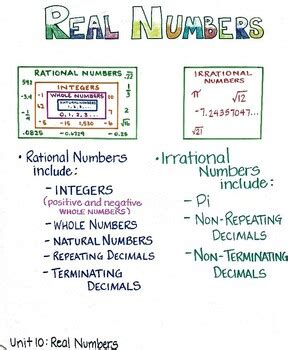 REAL NUMBERS
RATIONAL NUMBERS
INTEGERS
WHOLE NUMBERS
NATURAL NUMBERS
1, 2, 3...
0, 1, 2, 3...
-5 -15 1,530 -6
.0825 -0.4729 -0.25
IRRATIONAL
NUMBERS
π √12
-7.24357047...
√21
• Rational Numbers
include:
- INTEGERS
(positive and negative
WHOLE NUMBERS)
- WHOLE NUMBERS
- NATURAL NUMBERS
- REPEATING DECIMALS
- TERMINATING
DECIMALS
• Irrational
Numbers
include:
- Pi
- NON-REPEATING
DECIMALS
- NON-TERMINATING
DECIMALS
Unit 10: Real Numbers